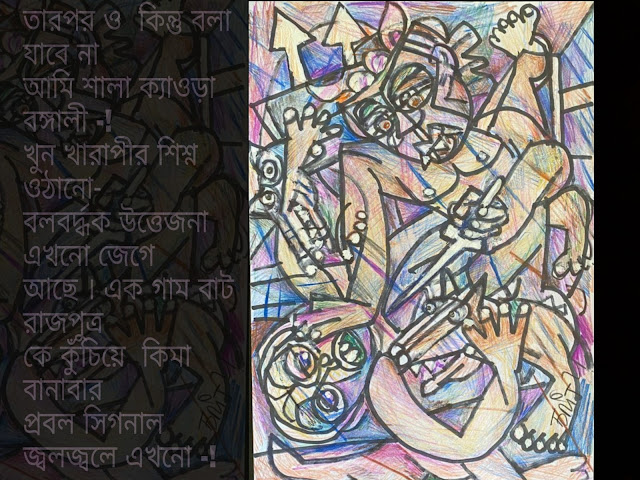 তারপর ও  কিন্তু বলা
যাবে না
আমি শালা ক্যাওড়া
বঙ্গালী -!
খুন খারাপীর শিশ্ন
ওঠানো-
বলবদ্ধক উত্তেজনা
এখনো জেগে
আছে । এক গাম বাট
রাজপুত্র
কে কুঁচিয়ে  কিমা
বানাবার
প্রবল সিগনাল
জ্বলজ্বলে এখনো -!